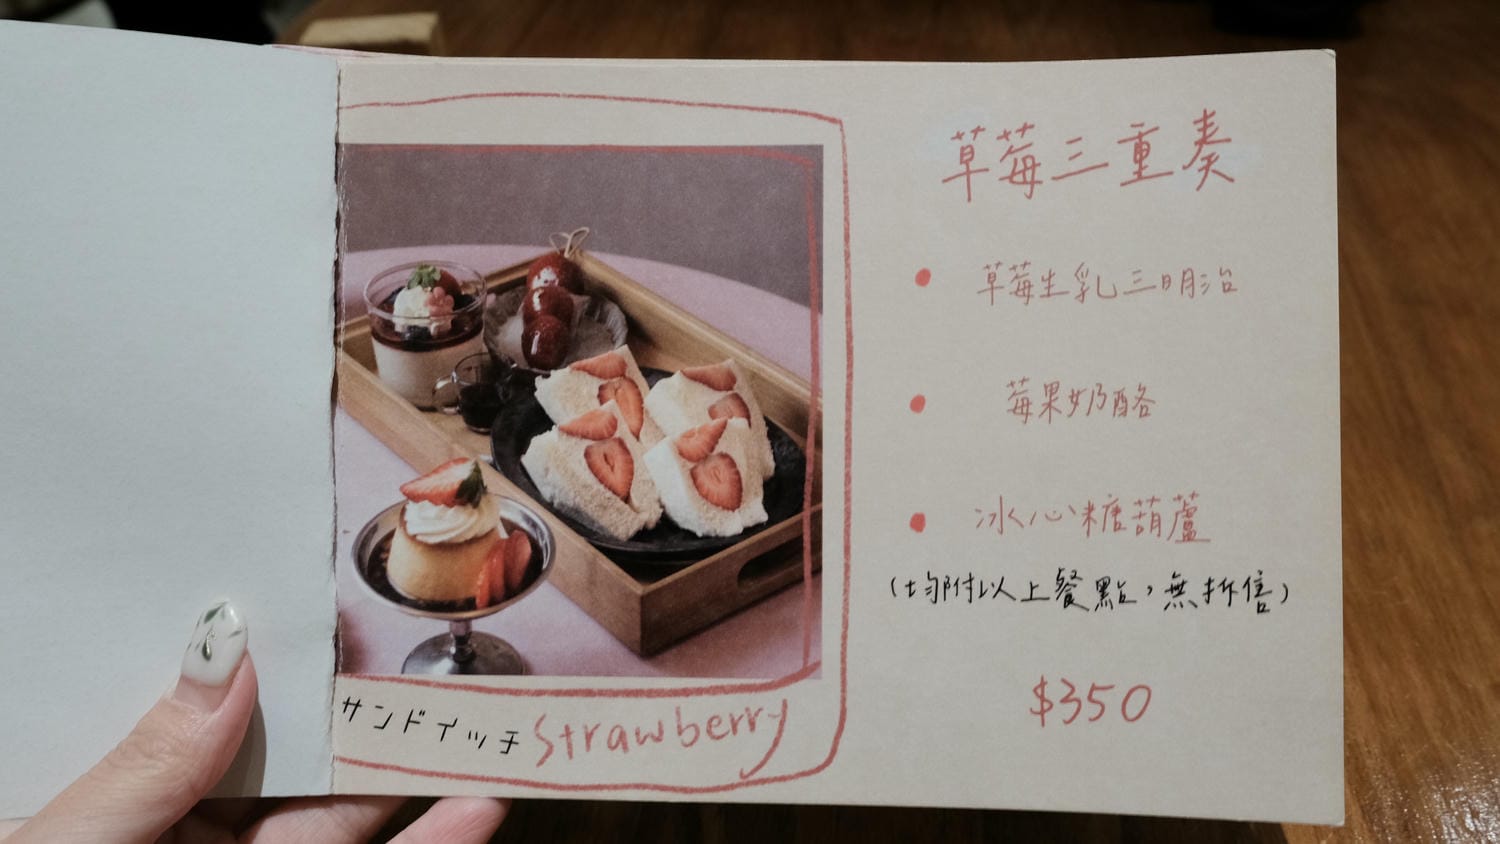 草莓三重奏
草莓生乳三明治
莓果奶酪
冰心糖葫蘆
(均附以上餐點，無拆售)
$350
サンドイッチ Strawberry